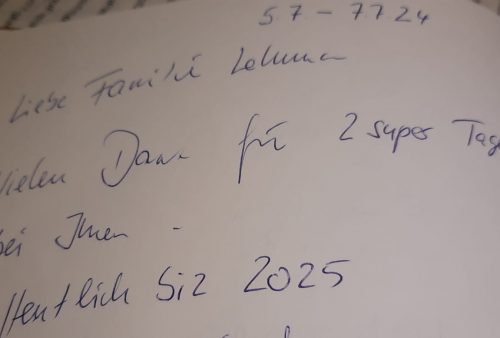 57-7724
Liebe Familie Lehmann
Vielen Dank für 2 super Tage
bei Ihnen -
offentlich bis 2025